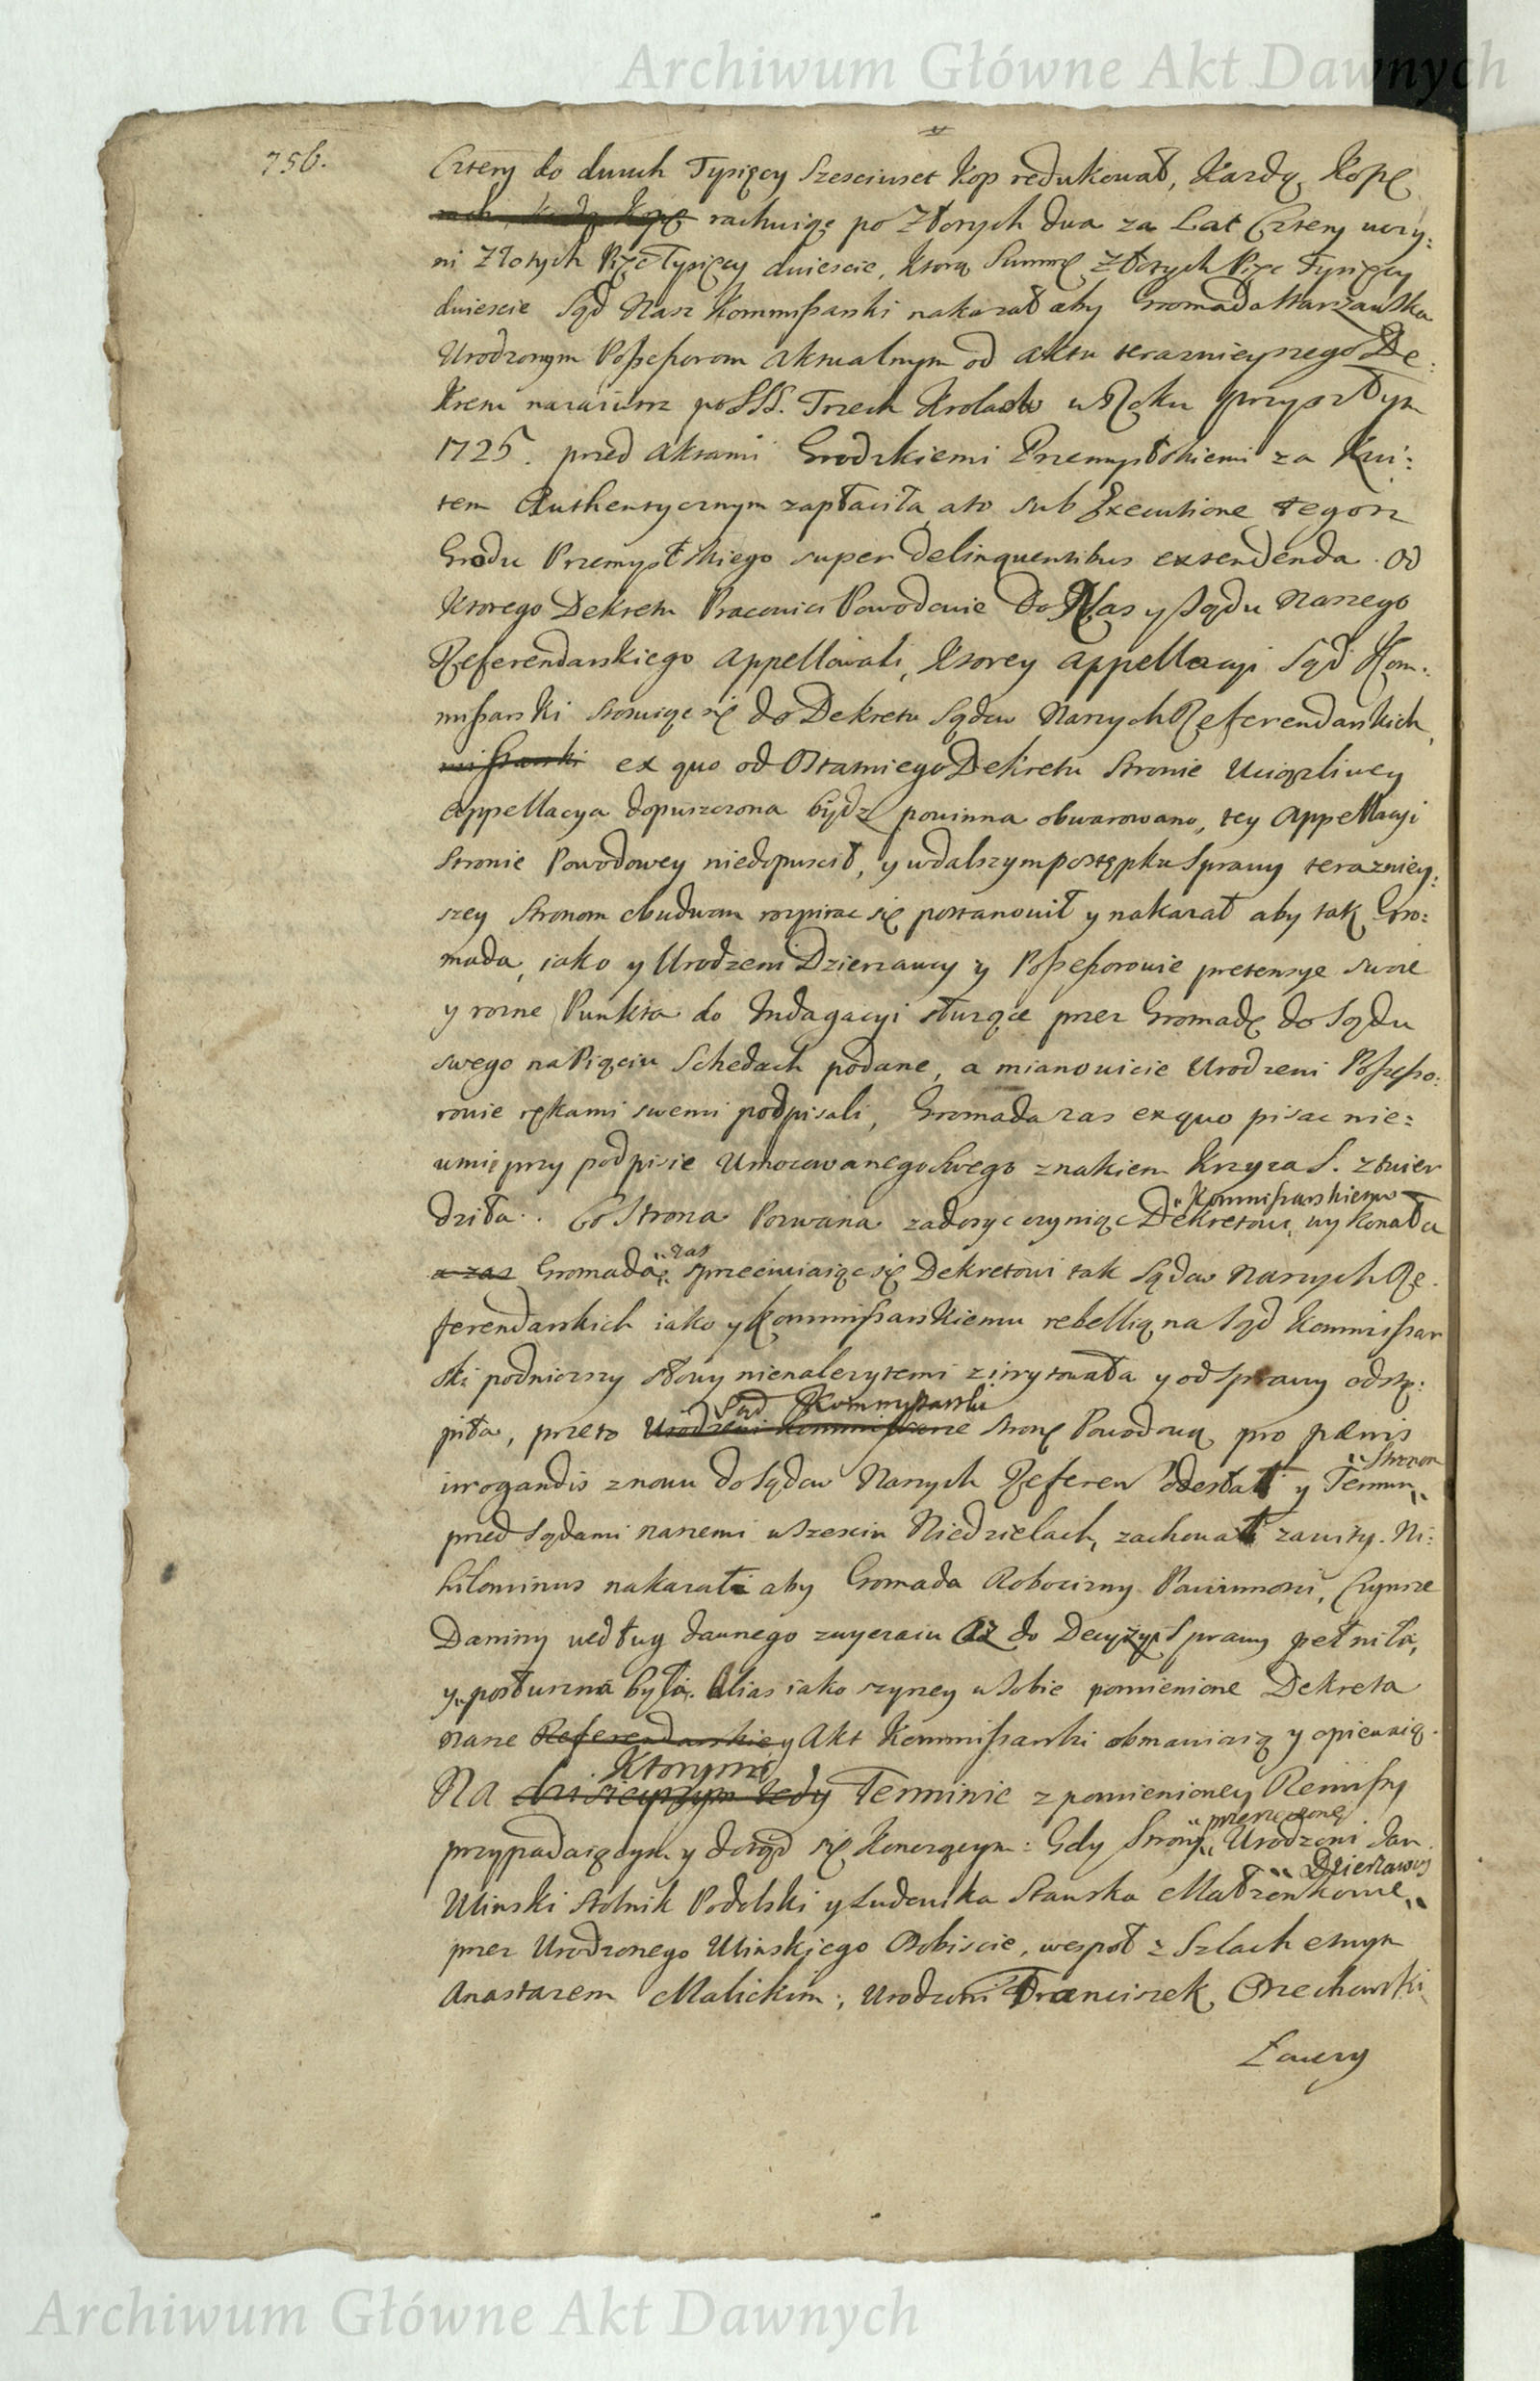 Archiwum Główne Akt Dawnych
756.
Cztery do dwuch Tysięcy Szesciuset Kop redukował, Kazdą Kopę
rach Kazdą Kopę rachuiąc po Złotych dwa za Lat Cztery uczy:
ni Złotych Pięc Tysięcy dwiescie, Ktorą Summę Złotych Pięc Tysięcy
dwiescie Sąd Nasz Kommissarski nakazał aby Gromada
Urodzonym Possessorom aktualnym od aktu terazniejszego De:
kretu naraiutrz po SSS. Trzech Krolach w Roku przyszłym
1725. przed Aktami Grodzkiemi Przemyslskiemi za Kwi:
tem Authentycznym zapłaciła, a to sub Executione tegosz
Grodu Przemyslskiego super delinquentibus extendenda. Od
Ktorego Dekretu Pracowici Powodowie do Nas y Sądu Naszego
Referendarskiego appellowali, Ktorey appellacyi Sąd Kom:
missarski stosuiąc się do Dekretu Sądow Naszych Referendarskich,
missarski ex quo od Ostatniego Dekretu Stronie Uciązliwey
Appellacya dopuszczona bydz powinna obwarowano, tey Appellacyi
Stronie Powodowey niedopuscił, y wdalszym postępku Sprawy terazniey:
szey Stronom obudwum rozpierac się postanowił y nakazał aby tak Gro:
mada, iako y Urodzeni Dzierzawcy y Possessorowie pretensye swoie
y rozne Punkta do Indagacyi słuzące przez Gromadę do Sądu
swego na Pięciu Schedach podane, a mianowicie Urodzeni Possesso:
rowie rękami swemi podpisali, Gromada zas ex quo pisac nie:
umie przy podpisie Umocowanego Swego znakiem Krzyza S. ztwier
dziła. Co Strona Pozwana zadosyc czyniąc Dekretowi, " Kommissarskiemu wykonała
a zas Gromada " zas sprzeciwiaiąc się Dekretowi tak Sądow Naszych Re.
ferendarskich iako y Kommissarskiemu rebellią na Sąd Kommissar
ski podniozszy słowy nienalezytemi zirytowała y od Sprawy odstę:
piła, przeto Urodzeni Kommissarze Sąd Kommissarski stronę Powodową pro pœnis
irrogandis znowu do Sądow Naszych Referen odesłał y Termin " Stronom
przed Sądami naszemi w Szesciu Niedzielach, zachował zawity. Ni:
hilominus nakazał aby Gromada Robocizny Powinnosci, Czynsze
Daniny według dawnego zwyczaiu Az do Decyzyi Sprawy pełniła,
y posłuszna była. Alias iako szyrzey w Sobie pomienione Dekreta
nasze Referendarskie y Akt Kommissarski obmawiaią y opiewaią.
Na dzisieyszym tedy Ktorymto Terminie z pomienioney Remissy
przypadaiącym y dotąd się Konczącym: Gdy Strony " przerzeczone Urodzeni Jan
Ulinski Stolnik Podolski y Ludwika Stawska Małzonkowie " Dzierzawcy
przez Urodzonego Ulinskiego Osobiscie, wespoł z Szlachetnym
Anastazem Malickim; Urodzeni Franciszek Orzechowski
Łowczy
Archiwum Główne Akt Dawnych